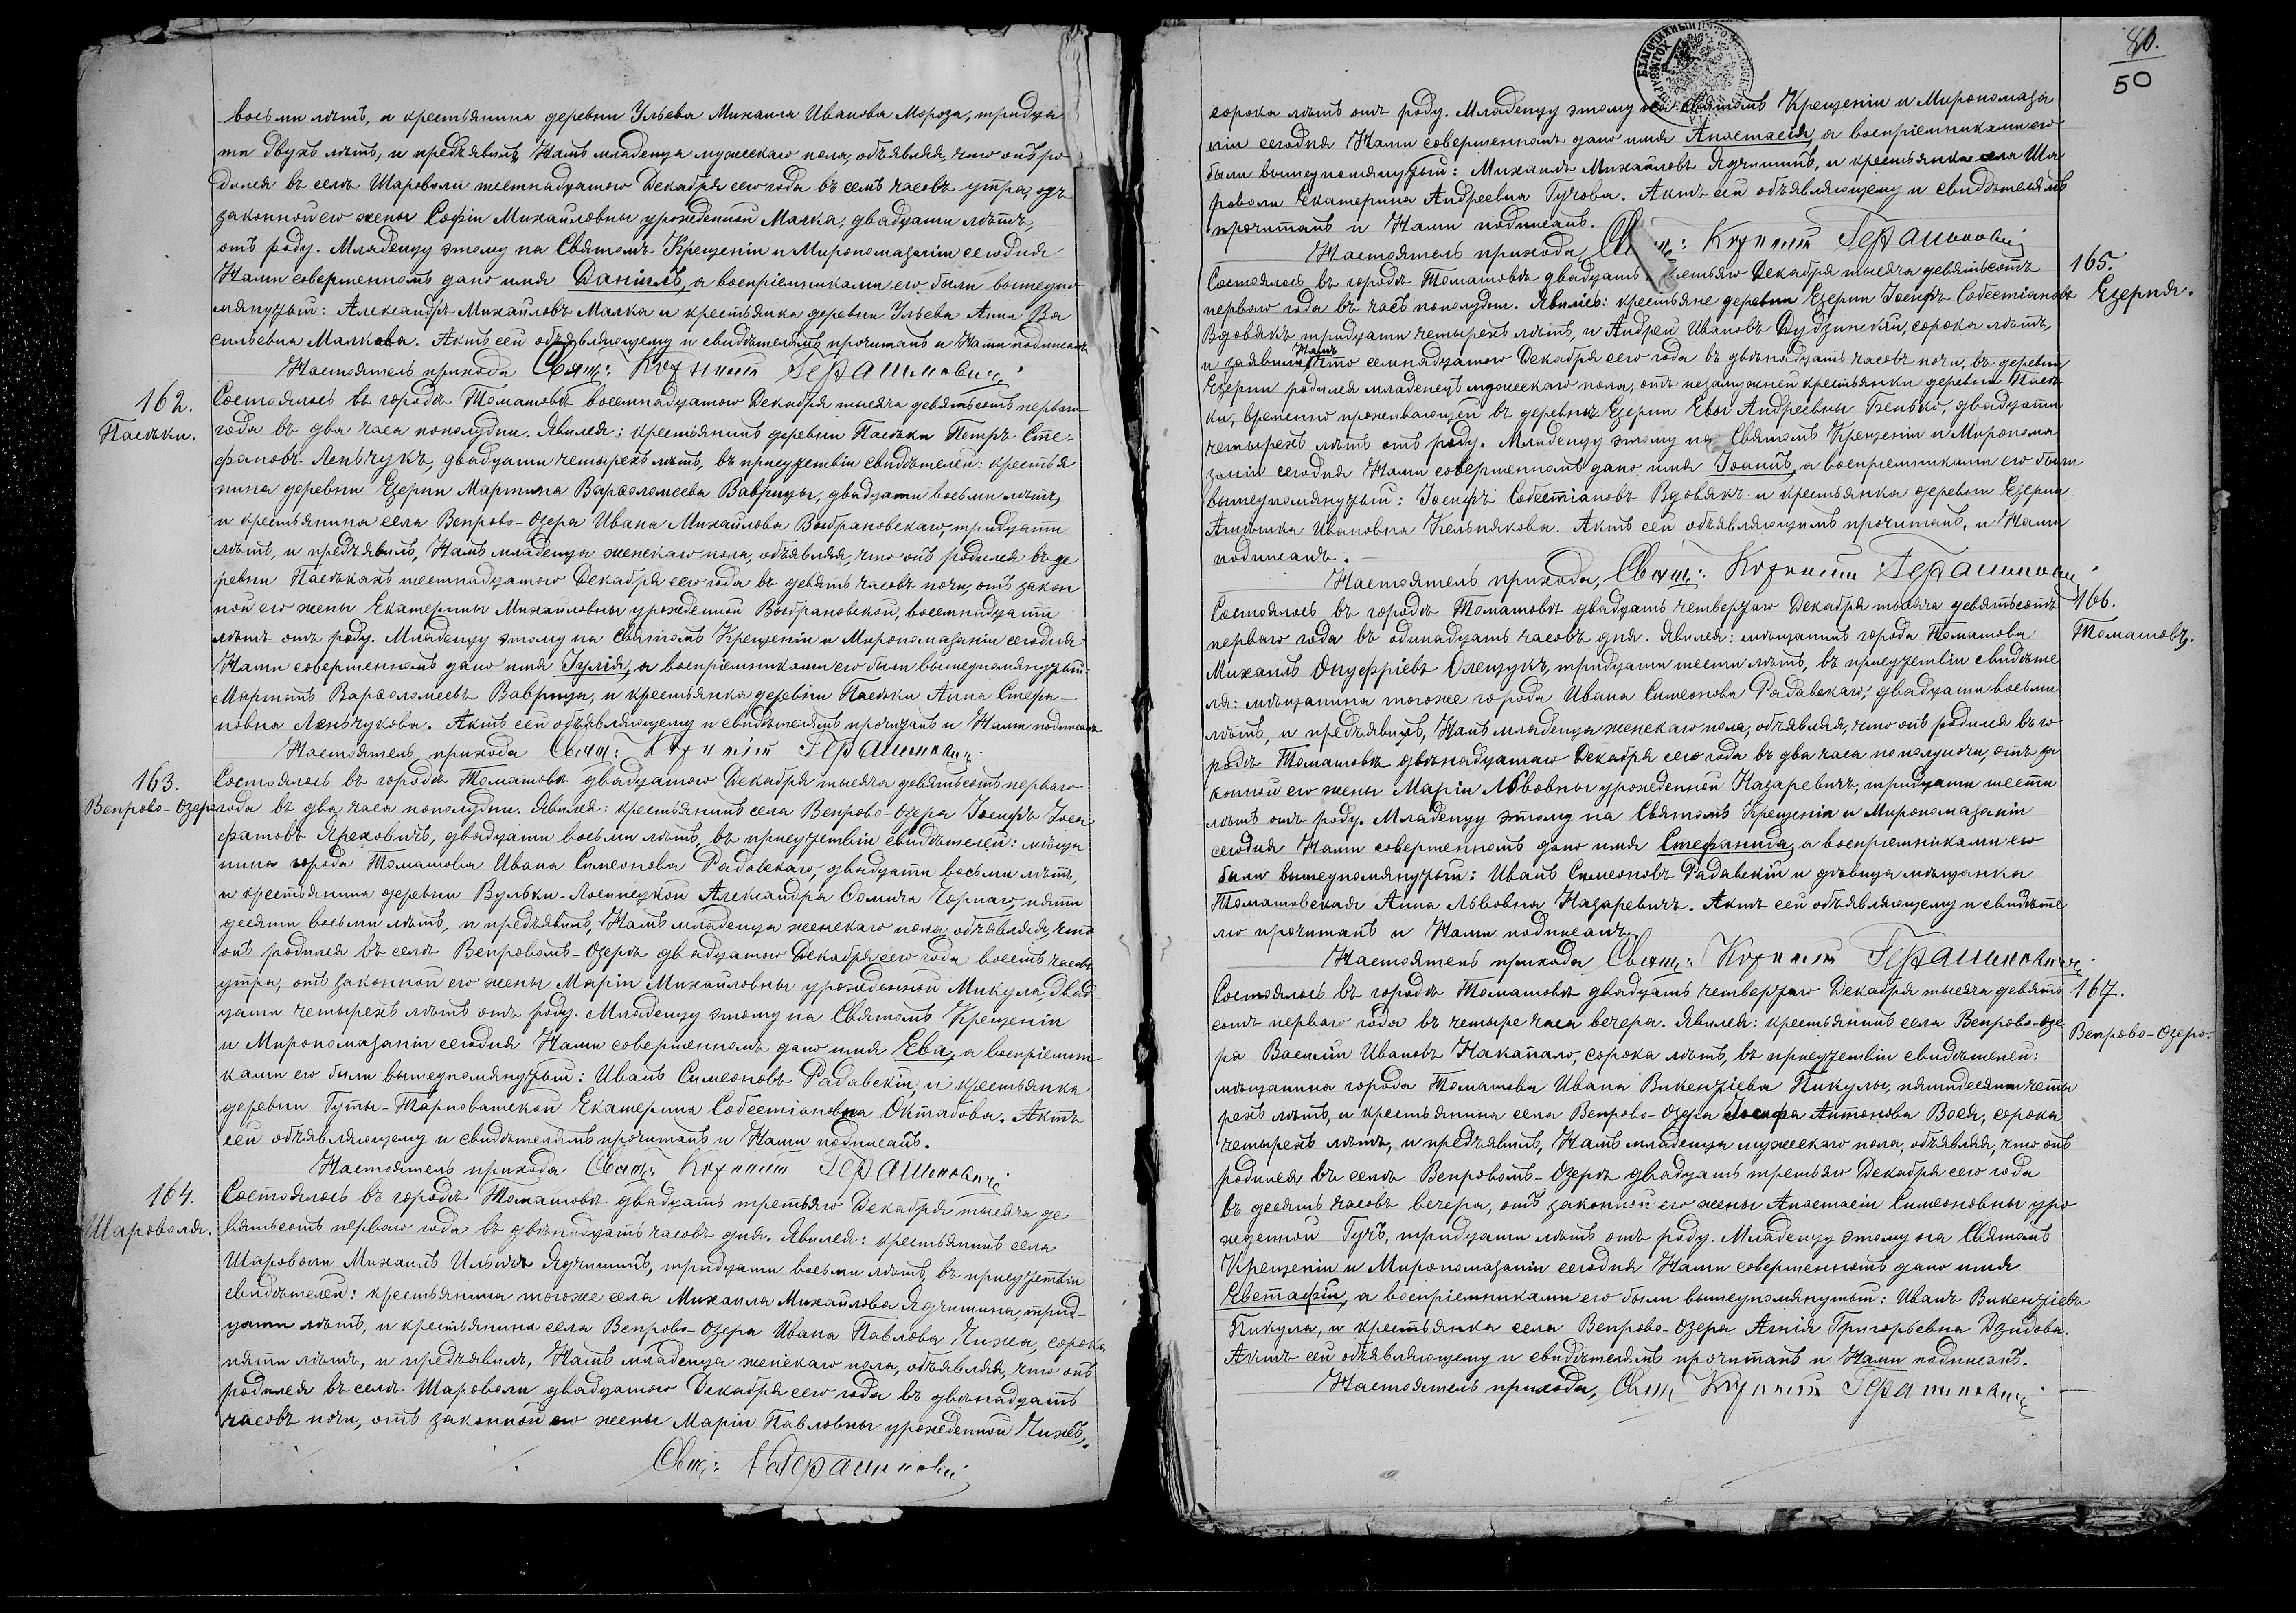 восьми лѣтъ, и крестьянина деревни Ульева Михаила Иванова Мороза, тридца
ти двухъ лѣтъ, и предъявилъ Намъ младенца мужескаго пола, объявляя, что онъ ро
дился въ селѣ Шароволи шестнадцатого Декабря сего года въ семь часовъ утра, отъ
законной его жены Софіи Михайловны урожденной Малка, двадцати лѣтъ,
отъ роду. Младенцу этому на Святомъ Крещеніи и Миропомазаніи сегодня
Нами совершенномъ дано имя Даніилъ, а воспріемниками его были вышеупо
мянутый: Александръ Михайловъ Малка и крестьянка деревни Ульева Анна Ва
сильевна Малкова. Актъ сей объявляющему и свидѣтелямъ прочитанъ и Нами подписанъ
Настоятель прихода Свящ:
162.
Пасѣки.
Состоялось въ городѣ Томашовѣ восемнадцатого Декабря тысяча девятьсотъ перваго
года въ два часа пополудни. Явился: крестьянинъ деревни Пасѣки Петръ Сте-
фановъ Леньчукъ, двадцати четырехъ лѣтъ, въ присутствіи свидѣтелей: крестья
нина деревни Езерни Мартина Варѳоломеева Ваврицы, двадцати восьми лѣтъ,
и крестьянина села Вепрово-Озера Ивана Михайлова Выбрановскаго, тридцати
лѣтъ, и предъявилъ, Намъ младенца женскаго пола, объявляя, что онъ родился въ де
ревни Пасѣкахъ шестнадцатого Декабря сего года въ девять часовъ ночи, отъ закон
ной его жены Екатерины Михайловны урожденной Выбрановской, восемнадцати
лѣтъ отъ роду. Младенцу этому на Святомъ Крещеніи и Миропомазаніи сегодня
Нами совершенномъ дано имя Іулія, а воспріемниками его были вышеупомянутый:
Мартинъ Варѳоломеевъ Ваврица, и крестьянка деревни Пасѣки Анна Стефа
новна Леньчукова. Актъ сей объявляющему и свидѣтелямъ прочитанъ и Нами подписанъ
Настоятель прихода Свящ:
163.
Вепрово-Озеро
Состоялось въ городѣ Томашовѣ двадцатого Декабря тысяча девятьсотъ перваго
года въ два часа пополудни. Явился: крестьянинъ села Вепрово-Озера Іосифъ Іоса
фатовъ Яреховичъ, двадцати восьми лѣтъ, въ присутствіи свидѣтелей: мѣща
нина города Томашова Ивана Симеонова Радавскаго, двадцати восьми лѣтъ,
и крестьянина деревни Вульки-Лосинецкой Александра Сомича Чорнаго, пяти
десяти восьми лѣтъ, и предъявилъ, Намъ младенца женскаго пола, объявляя, что
онъ родился въ селѣ Вепровомъ-Озерѣ двадцатого Декабря сего года восемь часовъ
утра, отъ законной его жены Маріи Михайловны урожденной Микула, двад
цати четырехъ лѣтъ отъ роду. Младенцу этому на Святомъ Крещеніи
и Миропомазаніи сегодня Нами совершенномъ дано имя Ева, а воспріемни
ками его были вышеупомянутый: Иванъ Симеоновъ Радавскій, и крестьянка
деревни Гуты-Тарноватской Екатерина Собестіановна Октабова. Актъ
сей объявляющему и свидѣтелямъ прочитанъ и Нами подписанъ.
Настоятель прихода Свящ:
164.
Шароволя.
Состоялось въ городѣ Томашовѣ двадцать третьяго Декабря тысяча де
вятьсотъ перваго года въ двѣнадцать часовъ дня. Явился: крестьянинъ села
Шароволи Михаилъ Ильичъ Ядчишинъ, тридцати восьми лѣтъ, въ присутствіи
свидѣтелей: крестьянина тогоже села Михаила Михайлова Ядчишина, трид-
цати лѣтъ, и крестьянина села Вепрово-Озера Ивана Павлова Чижа, сорока
пяти лѣтъ, и предъявилъ, Намъ младенца женскаго пола, объявляя, что онъ
родился въ селѣ Шароволи двадцатого Декабря сего года въ двѣнадцать
часовъ ночи, отъ законной его жены Маріи Павловны урожденной Чижъ,
Свящ:
80.
50
сорока лѣтъ отъ роду. Младенцу этому на Святомъ Крещеніи и Миропомаза
ніи сегодня Нами совершенномъ дано имя Анастасія, а воспріемниками его
были вышеупомянутый: Михаилъ Михайловъ Ядчишинъ, и крестьянка села Ша
роволи Екатерина Андреевна Гучова. Актъ сей объявляющему и свидѣтелямъ
прочитанъ и Нами подписанъ.
Настоятель прихода
165.
Езерня.
Состоялось въ городѣ Томашовѣ двадцать третьяго Декабря тысяча девятьсотъ
перваго года въ часъ пополудни. Явились: крестьяне деревни Езерни Іосифъ Собестіановъ
Вдовякъ тридцати четырехъ лѣтъ, и Андрей Ивановъ Дудзинскій, сорока лѣтъ,
и заявили Намъ что семнадцатого Декабря сего года въ двѣнадцать часовъ ночи, въ деревни
Езерни родился младенецъ мужескаго пола, отъ незамужней крестьянки деревни Пасѣ
ки, временно проживающей въ деревнѣ Езерни Евы Андреевны Бенько, двадцати
четырехъ лѣтъ отъ роду. Младенцу этому на Святомъ Крещеніи и Миропома
заніи сегодня Нами совершенномъ дано имя Іоаннъ, а воспріемниками его были
вышеупомянутый: Іосифъ Собестіановъ Вдовякъ и крестьянка деревни Езерни
Ивановна Кельнякова. Актъ сей объявляющимъ прочитанъ, и Нами
подписанъ.
Настоятель прихода, Свящ:
166.
Томашовъ.
Состоялось въ городѣ Томашовѣ двадцать четвертаго Декабря тысяча девятьсотъ
перваго года въ одинадцать часовъ дня. Явился: мѣщанинъ города Томашова
Михаилъ Онуфріевъ Олещукъ, тридцати шести лѣтъ, въ присутствіи свидѣте
ля: мѣщанина тогоже города Ивана Симеонова Радавскаго, двадцати восьми
лѣтъ, и предъявилъ, Намъ младенца женскаго пола, объявляя, что онъ родился въ го
родѣ Томашовѣ двѣнадцатаго Декабря сего года въ два часа пополуночи, отъ за
конной его жены Маріи Львовны урожденной Назаревичъ, тридцати шести
лѣтъ отъ роду. Младенцу этому на Святомъ Крещеніи и Миропомазаніи
сегодня Нами совершенномъ дано имя Стефанида, а воспріемниками его
были вышеупомянутый: Иванъ Симеоновъ Радавскій и дѣвица мѣщанка
Томашовская Анна Львовна Назаревичъ. Актъ сей объявляющему и свидѣте
лю прочитанъ и Нами подписанъ.
Настоятель прихода Свящ:
167.
Вепрово-Озеро.
Состоялось въ городѣ Томашовѣ двадцать четвертаго Декабря тысяча девять
сотъ перваго года въ четыре часа вечера. Явился: крестьянинъ села Вепрово-Озе
ра Василій Ивановъ Накапало, сорока лѣтъ, въ присутствіи свидѣтелей:
мѣщанина города Томашова Ивана Викентіева Пикулы, пятидесяти четы
рехъ лѣтъ, и крестьянина села Вепрово-Озера Іосифа Антонова Вося, сорока
четырехъ лѣтъ, и предъявилъ, Намъ младенца мужескаго пола, объявляя, что онъ
родился въ селѣ Вепровомъ-Озерѣ двадцать третьяго Декабря сего года
въ десять часовъ вечера, отъ законной его жены Анастасіи Симеоновны уро
жденной Гучъ, тридцати лѣтъ отъ роду. Младенцу этому на Святомъ
Крещеніи и Миропомазаніи сегодня Нами совершенномъ дано имя
Евстафій, а воспріемниками его были вышеупомянутый: Иванъ Викентіевъ
Пикула, и крестьянка села Вепрово-Озера Агнія Григорьевна Дзидова.
Актъ сей объявляющему и свидѣтелямъ прочитанъ и Нами подписанъ.
Настоятель прихода, Свящ